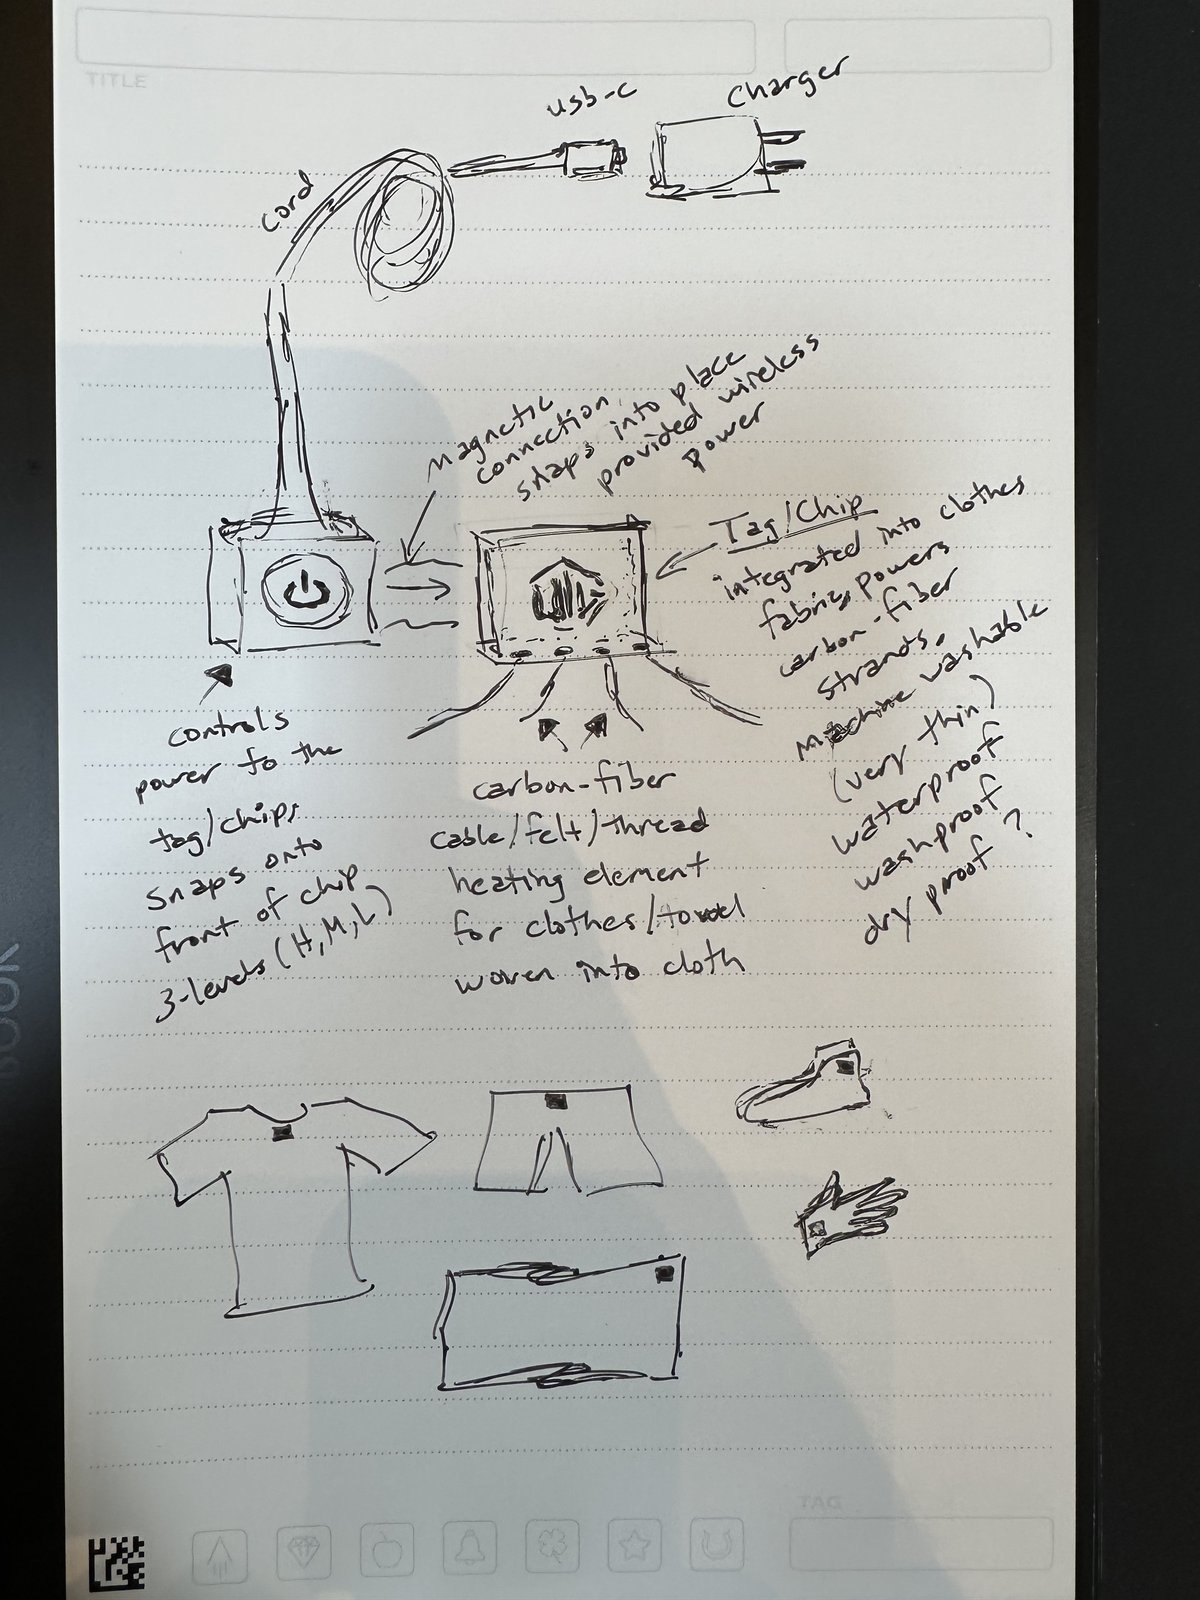 TITLE
usb-c
charger
cord
magnetic
connection
snaps into place
provided wireless
power
Tag/Chip
integrated into clothes
fabric, powers
carbon-fiber
strands.
machine washable
(very thin)
waterproof
washproof
dry proof?
controls
power to the
tag/chip,
snaps onto
front of chip
3-levels (H, M, L)
carbon-fiber
cable/felt/thread
heating element
for clothes/towel
woven into cloth
TAG